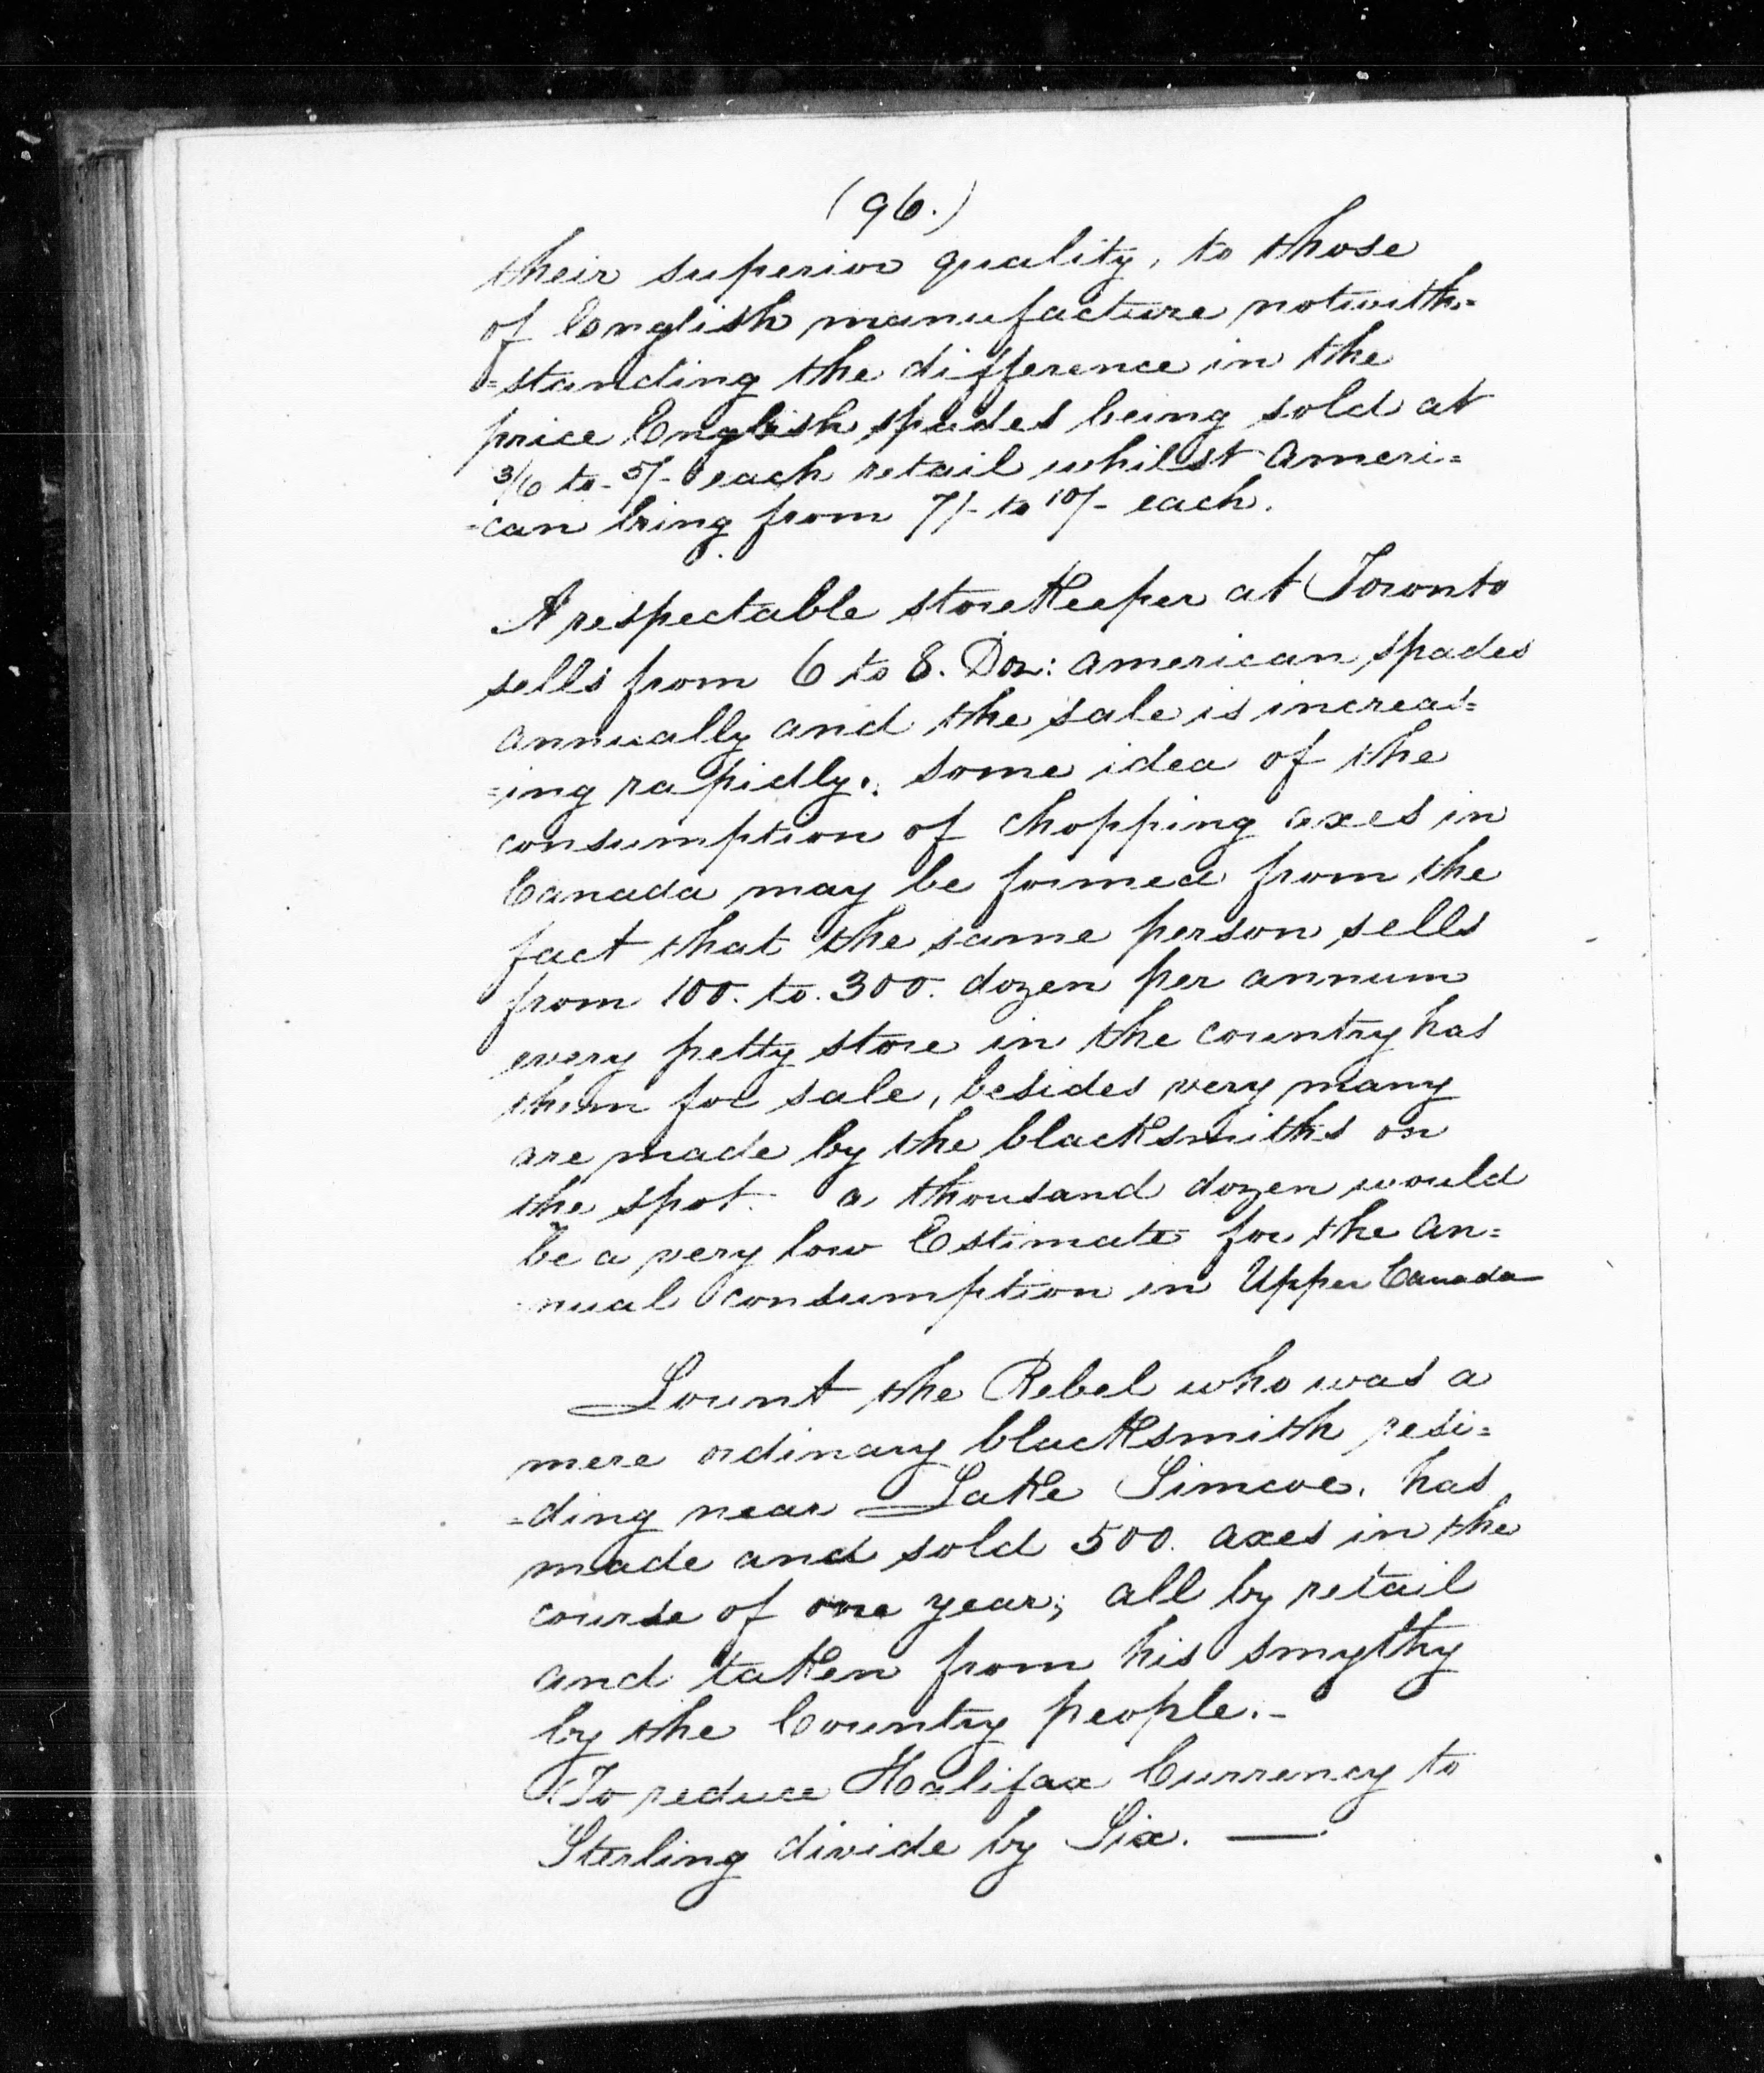 (96.)
their superior quality, to those
of English manufacture notwith=
=standing the difference in the
price English spades being sold at
3/6 to 5/- each retail whilst Ameri=
=can bring from 7/- to 10/- each.
A respectable storekeeper at Toronto
sells from 6 to 8. Doz: American spades
annually and the sale is increas=
=ing rapidly. some idea of the
consumption of chopping axes in
Canada may be formed from the
fact that the same person sells
from 100. to. 300. dozen per annum
every petty store in the country has
them for sale, besides very many
are made by the blacksmiths on
the spot. a thousand dozen would
be a very low Estimate for the an=
=nual consumption in Upper Canada
Lount the Rebel who was a
mere ordinary blacksmith resi=
=ding near Lake Simcoe, has
made and sold 500. axes in the
course of one year; all by retail
and taken from his smythy
by the Country people.-
To reduce Halifax Currency to
Sterling divide by Six. —